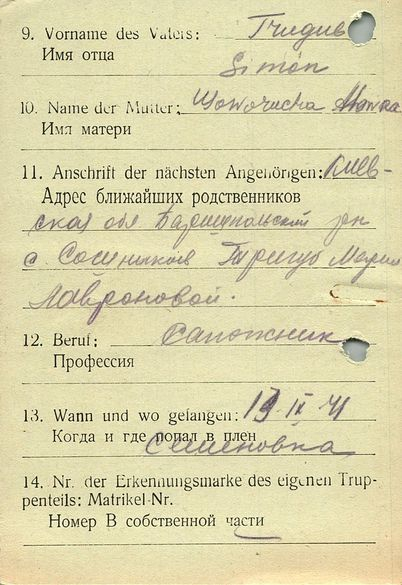 9. Vorname des Vaters: Тригуб
Имя отца
Simon
10. Name der Mutter:
Имя матери
11. Anschrift der nächsten Angehörigen: Киев-
Адрес ближайших родственников
ская обл Барышпольский рн
с. Сосиньков Тригуб Марии
Лавроновой.
12. Beruf: Сапожник
Профессия
13. Wann und wo gefangen: 19 IX 41
Когда и где попал в плен
Семеновка
14. Nr. der Erkennungsmarke des eigenen Trup-
penteils: Matrikel-Nr.
Номер В собственной части